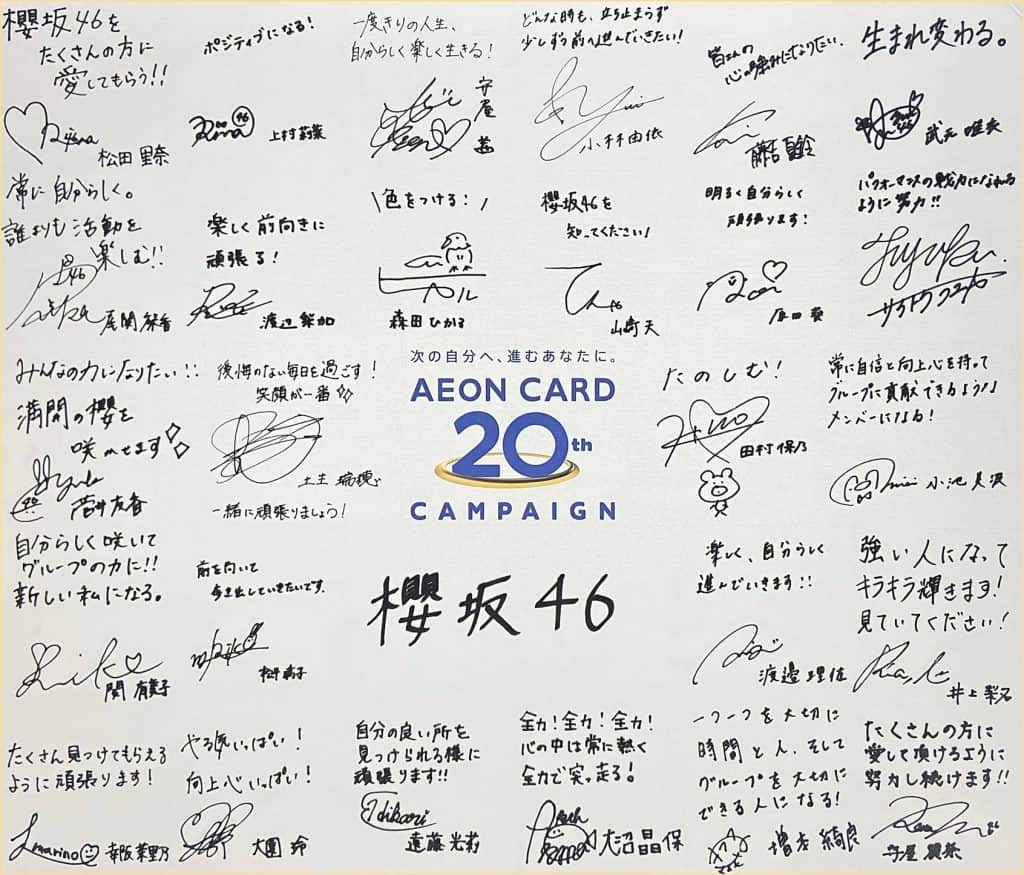 櫻坂46を
たくさんの方に
愛してもらう!!
松田 里奈
ポジティブになる!
上村 莉菜
一度きりの人生、
自分らしく楽しく生きる!
守屋 茜
どんな時も、立ち止まらず
少しずつ前へ進んでいきたい!
小林由依
皆さんの
心の踊みになりたい。
藤吉 夏鈴
生まれ変わる。
武元 唯衣
常に 自分らしく。
誰よりも活動を
楽しむ!!
尾関 梨香
楽しく前向きに
頑張る!
渡辺 梨加
\色をつける:ノ
森田 ひかる
櫻坂46を
知ってください!
てん
山﨑 天
明るく自分らしく
頑張ります!
原田 葵
パフォーマンスの戦力になれる
ように努力!!
Fuyuka.
サイトウフユカ
みんなの力になりたい::
満開の櫻を
咲かせます
菅井友香
後悔のない毎日を過ごす!
笑顔が一番
土生 瑞穂
一緒に頑張りましょう!
次の自分へ、進むあなたに。
AEON CARD
20th
CAMPAIGN
櫻坂46
たのしむ!
田村 保乃
常に自信と向上心を持って
グループに貢献できるような
メンバーになる!
小池 美波
自分らしく咲いて
グループの力に!!
新しい私になる。
関 有美子
前を向いて
歩き出していきたいです。
松平 璃子
楽しく、自分らしく
進んでいきます::
渡邉 理佐
強い人になって
キラキラ輝きます!
見ていてください!
井上 梨名
たくさん見つけてもらえる
ように頑張ります!
marino
幸阪茉里乃
やる気いっぱい!
向上心いっぱい!
大園 玲
自分の良い所を
見つけられる様に
頑張ります!!
Hikari
遠藤 光莉
全力!全力!全力!
心の中は常に熱く
全力で突っ走る!
大沼晶保
一つ一つを大切に
時間と人、そして
グループを大切に
できる人になる!
増本 綺良
たくさんの方に
愛して頂けるように
努力し続けます!!
守屋 麗奈